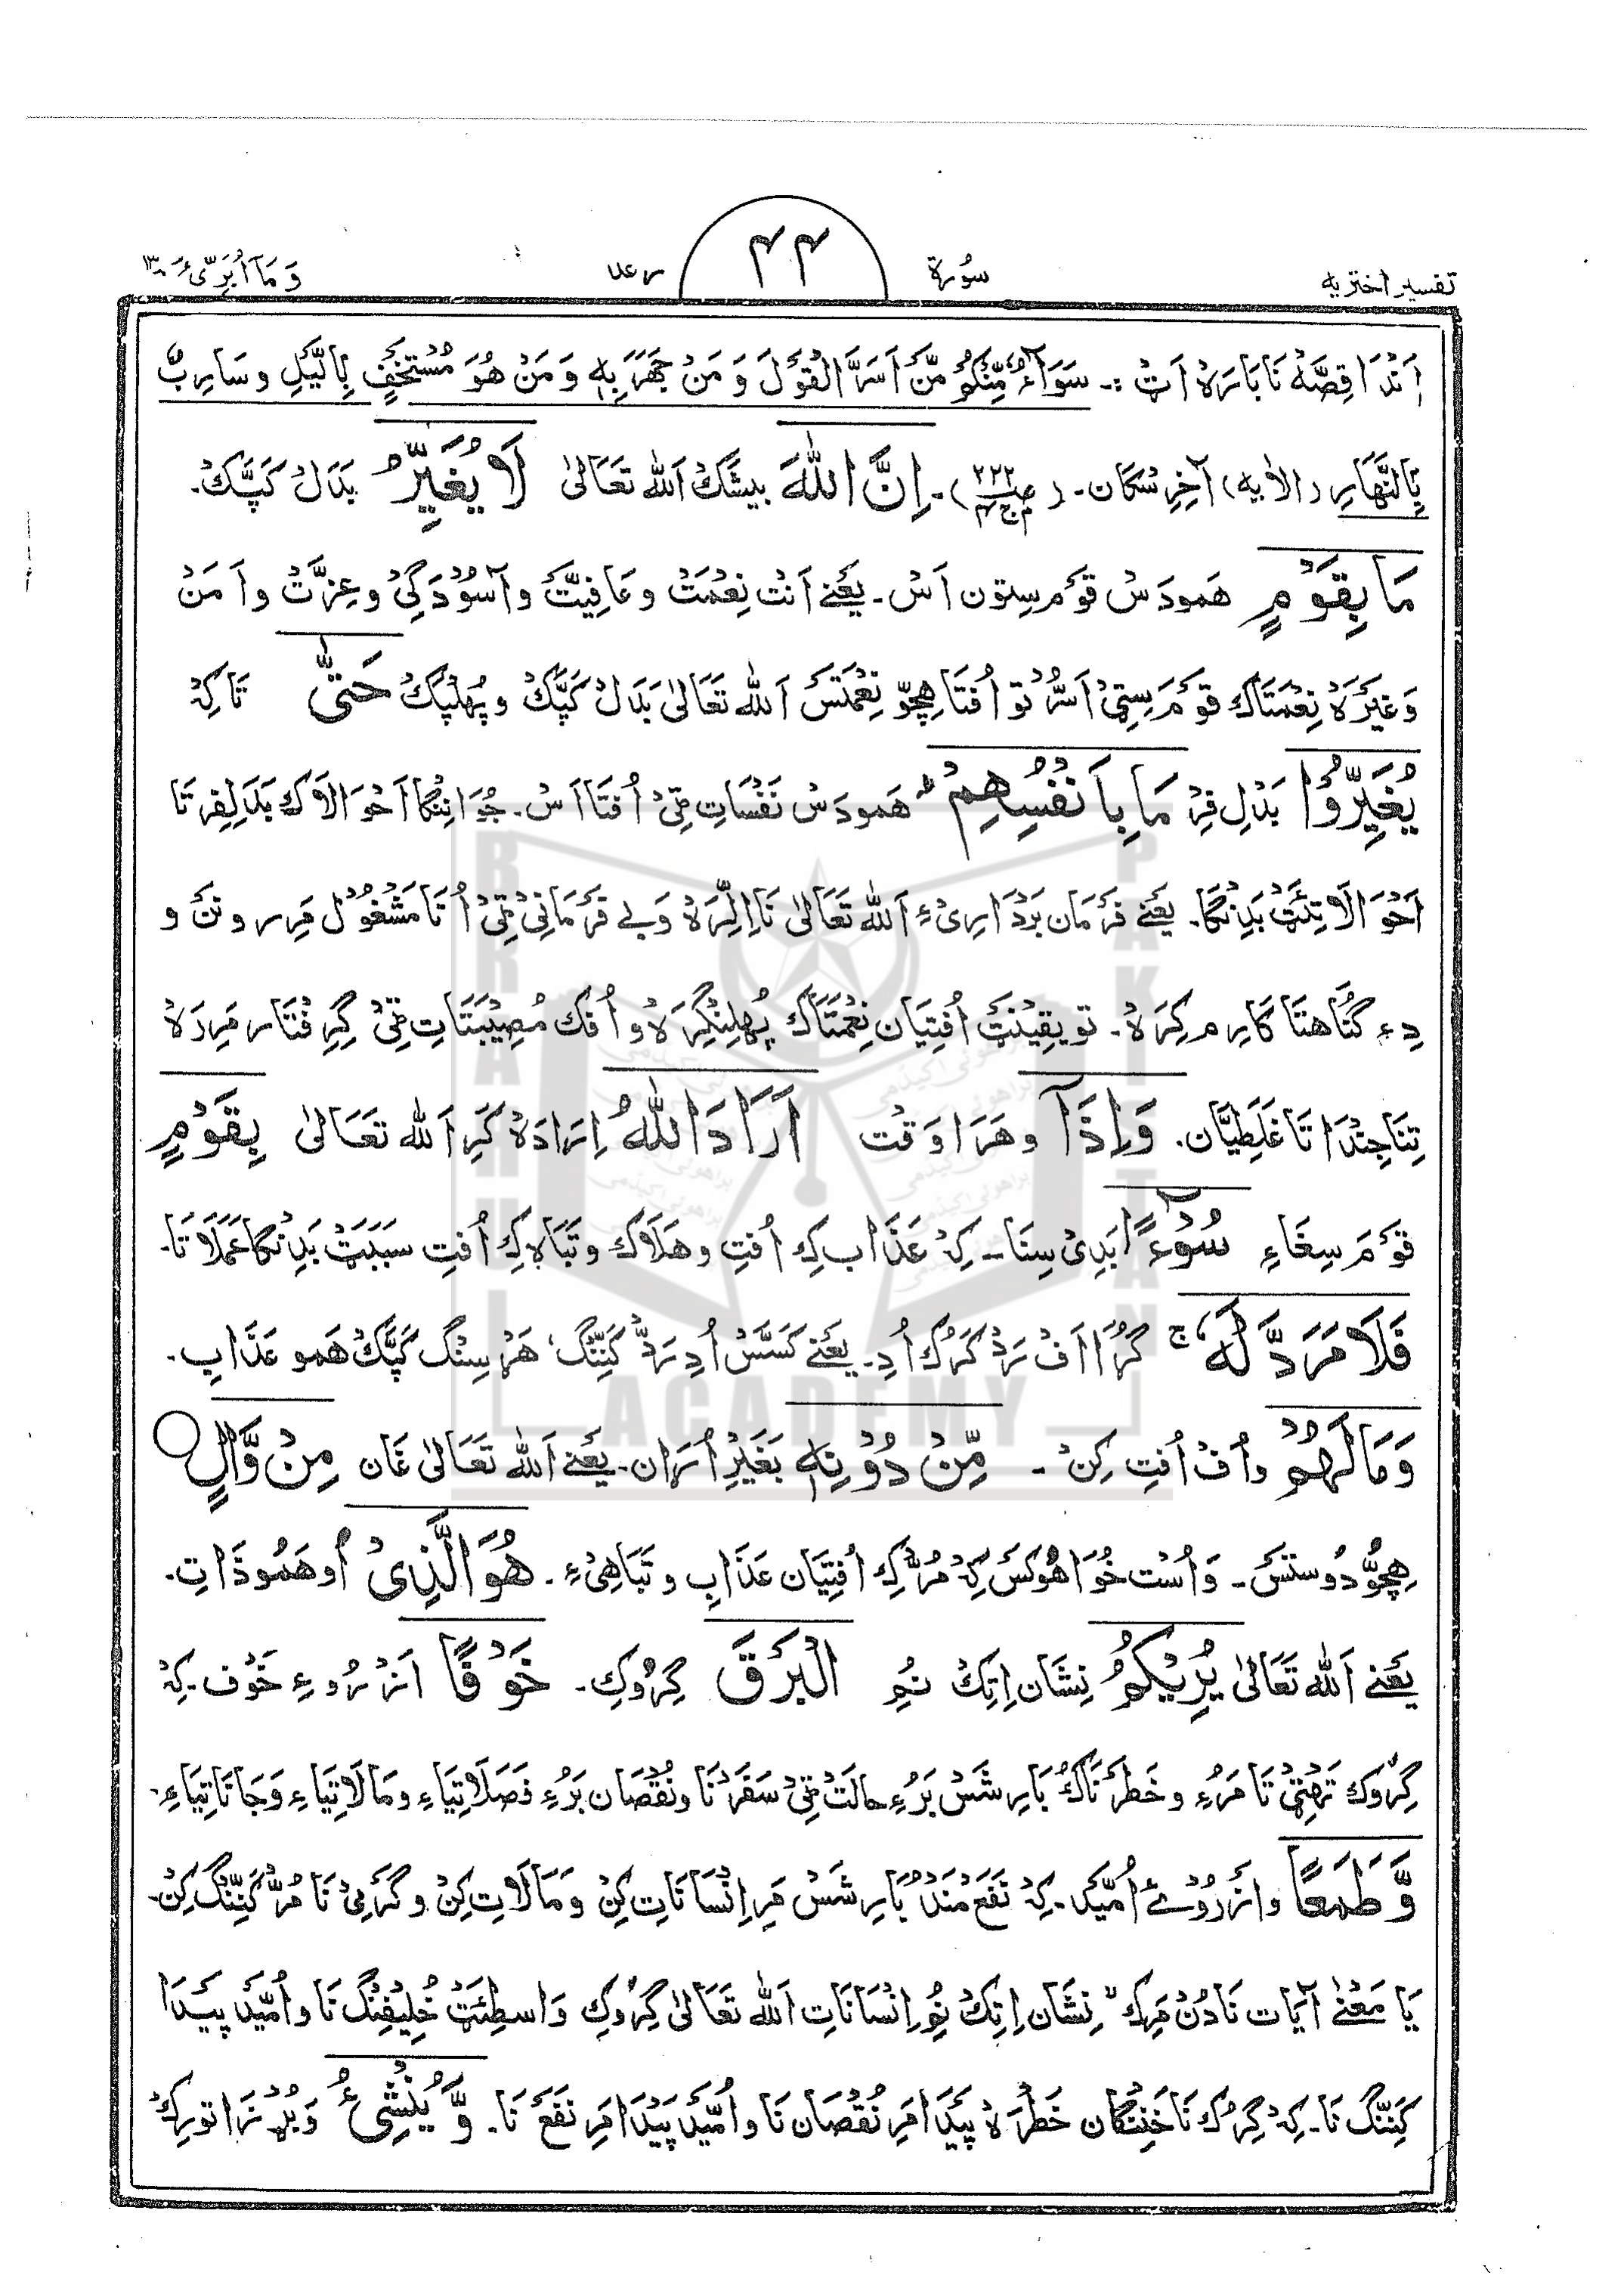 تفسیر اختریه سُورة ۴۴ رعد وَمَآ اُبَرِّئُ ۱۳
اَنْدَا قِصَّهْ نَا بَارَہْ اَٹْ :۔ سَوَآءٌ مِّنْكُمْ مَّنْ اَسَرَّ الْقَوْلَ وَمَنْ جَهَرَ بِهٖ وَمَنْ هُوَ مُسْتَخْفٍۭ بِالَّيْلِ وَسَارِبٌۢ
بِالنَّهَارِ (الاٰیه) آخِرِ سْكَان۔ (ص۲۲۲ ج۴)۔ اِنَّ اللّٰهَ بیشَّكْ اَللّٰه تَعَالیٰ لَا يُغَيِّرُ بَدَلْ كَپَّكْ۔
مَا بِقَوْمٍ هَمودَسْ قَوْم سِٹون اَسْ۔ یَعْنے اَنْت نِعْمَتْ وعَافِیَّتْ وآسُوْدَگِیْ وعِزَّتْ واَمَنْ
وَغَیْرَہْ نِعْمَتَاكْ قَوْمَ سِٹِیْ اَسُّرْ تو اُفتَا هِچّو نِعْمَتَسْ اَللّٰه تَعَالیٰ بَدَلْ كَپَّكْ وپُهْلپَكْ حَتّٰى تَاكِهْ
يُغَيِّرُوْا بَدْلِ فِرْ مَا بِاَنْفُسِهِمْ هَمودَسْ نَفْسَاتِ ٹِیْ اُفتَا اَسْ۔ جُوَانِنْگَا اَحْوَالَاكْ بَدَلِفِرتَا
اَحْوَالَاتِتْ بَدِنْگَا۔ یَعْنے فَرْمَان بَرْدَارِیْءِ اَللّٰه تَعَالیٰ نَا اِلِّرَہْ وَبے فَرْمَانِیْ ٹِیْ اُنَا مَشْغُوْل مَرِر و نَنْ و
دِءِ گُنَاهتَا كَارِم كِرَہْ۔ تو یَقِیْنَتْ اُفتِیَان نِعْمَتَاكْ پُهلِنْگِرَہْ و اُفكْ مُصِیْبَتَاتِ ٹِیْ گِرِفْتَار مَرِرَہْ
تِنَا جِنْدَا نَا غَلَطِیَّان۔ وَاِذَآ وهَرَا وَقْت اَرَادَ اللّٰهُ اِرَادَہْ كَرِ اَللّٰه تَعَالیٰ بِقَوْمٍ
قَوْمَ سِغَاءِ سُوْٓءًا بَدِیْ سِنَا۔ كِهْ عَذَاب كِ اُفتِ وهَلَاكْ وتَبَاه كِ اُفتِ سَبَبَتْ بَدِنْگَا عَمَلَاتَا۔
فَلَا مَرَدَّ لَهٗ ج گُرَا اَفْ رَدْ كَرُكْ اُدِ۔ یَعْنے كَسَّسْ اُدِ رَدّْ كَنِنْگْ، هَرْسِنْگ كَپَّكْ هَمو عَذَابِ۔
وَمَا لَهُمْ واُفْ اُفتِ كِنْ ۔ مِّنْ دُوْنِهٖ بَغَیْرِ اُرَان۔ یَعْنے اَللّٰه تَعَالیٰ غَان مِنْ وَّالٍ ○
هِچُّو دُوسْتَسْ۔ وَاُسْت خُوَاهُوكَسْ كِهْ مُرُّكِ اُفتِیَان عَذَابِ وتَبَاهِیْءِ۔ هُوَ الَّذِیْ اُو هَمُو ذَاتِ۔
یَعْنے اَللّٰه تَعَالیٰ يُرِيْكُمُ نِشَان اِتِكْ نُمِ الْبَرْقَ گِرُوكِ۔ خَوْفًا اَزْ رُوءِ خَوْف۔ كِهْ
گِرُوك تَهْتِیْ نَا مَرَءِ وخَطَرْنَاكْ بَارِشَسْ بَرَءِ حالَتْ ٹِیْ سَفَرْنَا ونُقْصَان بَرَءِ فَصَلَاتِیَاءِ ومَالَاتِیَاءِ وَجَاتَاتِیَاءِ۔
وَّطَمَعًا واَزْ رُوْئے اُمّید۔ كِهْ نَفَع مَنْدْ بَارِشَسْ مَرِ اِنْسَانَاتِ كِنْ ومَالَاتِ كِنْ وگَرْمِیْ نَا مُرّ كَنِنْگ كِنْ۔
یَا مَعْنےٰ آیَات نَا دُنْ مَرِكْ " نِشَان اِتِكْ نُمِ اِنْسَانَاتِ اَللّٰه تَعَالیٰ گِرُوكِ وَاسطِئَتْ خُلِیْفِنْگ نَا و اُمّید پَیْدَا
كَنِنْگ نَا۔ كِهْ گِرُك نَا خَنِنْگَان خَطَرَہْ پَیْدَا مَرِ نُقْصَان نَا و اُمّید پَیْدَا مَرِ نَفَع نَا۔ وَّيُنْشِئُ وَبُرْزَا توركْ
BRAHUI ACADEMY PAKISTAN
براهوئی اکیڈمی